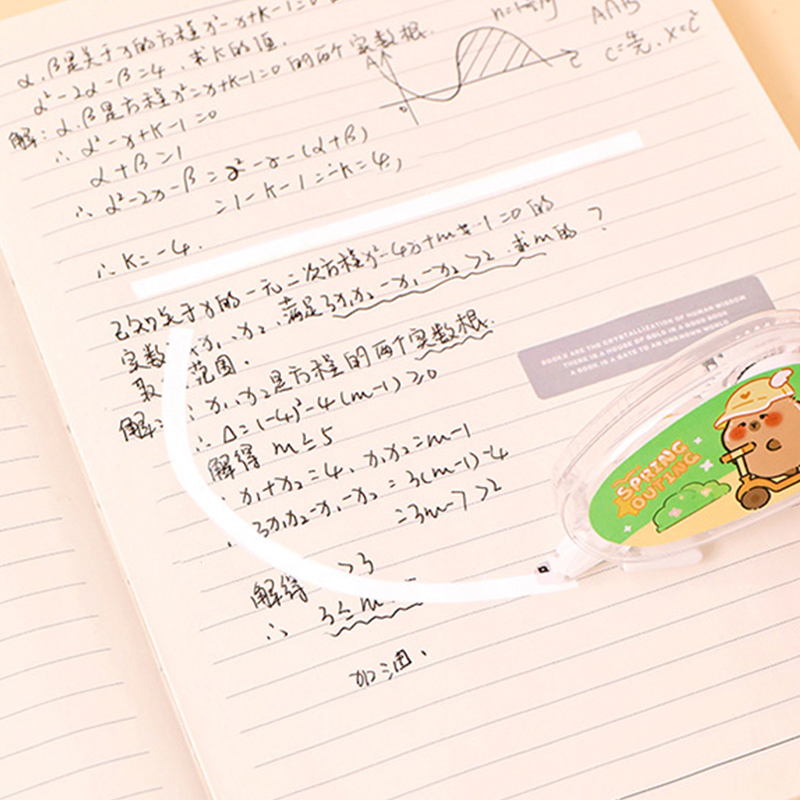 α.β是关于x的方程x²-x+k-1=0
α²-2α-β=4,求k的值.
解:α.β是方程x²-x+k-1=0的两个实数根.
∴α²-x+k-1=0
α+β=1
∴α²-2α-β=α²-α-(α+β)
=1-k-1=-k=4,
∴k=-4.
A
C
0
A∩B
已知关于x的一元二次方程x²-4x+m-1=0的
实数 x₁、x₂,满足3x₁x₂-x₁-x₂>2.求m的?
取 范围.
解: x₁、x₂是方程的两个实数根.
∴Δ=(-4)²-4(m-1)≥0
解得 m≤5
x₁+x₂=4,x₁x₂=m-1
3x₁x₂-x₁-x₂=3(m-1)-4
=3m-7>2
解得 >3
∴ 3≤m
加油.
BOOKS ARE THE CRYSTALLIZATION OF HUMAN WISDOM
THERE IS A HOUSE OF GOLD IN A GOOD BOOK
A BOOK IS A GATE TO AN UNKNOWN WORLD
SPRING
OUTING